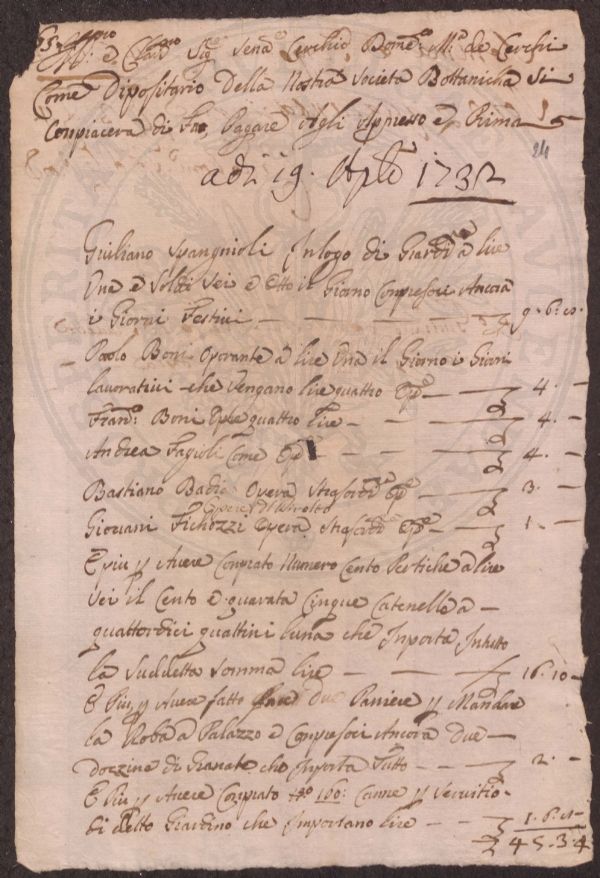 Ill.mo e Clar.mo Sig.e Sena.e Cerchio Dome.o M.a de Cerchi
Come Dipositario Della Nostra Societa Bottanicha Si
Conpiacerà di Pagare agli Appresso e Prima
24
adi 19. Aple 1732
Giuliano Spangnioli Inlogo di Giard.o a lire
Una e Soldi Sei e Otto il Giorno Conpresoci Ancora
i Giorni Festivi — — — 9. 6. 8.
Paolo Boni Operante a lire Una il Giorno i Giorni
lavorativi che vengano lire quattro — 4. —
Fran.o Boni lire quattro lire — — — 4. —
Andrea Fagioli Come — — — 4. —
Bastiano Opera Strasord.a — — 3. —
Giovani Opera — — 1. —
E piu p Avere Conprato Numero Cento Pertiche a lire
Sei il Cento e quarata Cinque Catenelle a —
quattordici quattrini luna che Inporta Intutto
la Suddetta Somma lire — — — 16. 10 —
E Piu p Avere fatto fare due Paniere p Mandare
la Roba a Palazzo e Conpresoci Ancora due —
Dozzine di Granate che Inporta Tutto — — 2. —
E Piu p Avere Conprato No 160: Canne p Servitio —
di detto Giardino che Importano lire — — 1. 6. 8 —
45. 3. 4